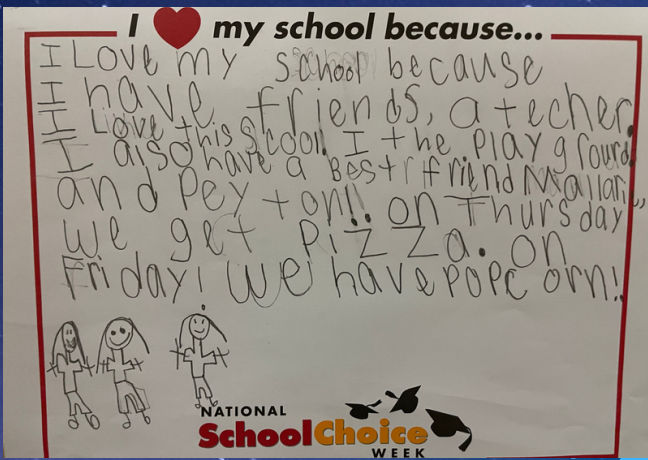 I ❤ my school because...
I Love my school because
I have friends, a techer.
I Love this Scool. I the playground.
I also have a Best friend Mallari,,
and Peyton!! on Thursday
we get Pizza. on
Friday! we have popcorn!!
NATIONAL
SchoolChoice
WEEK